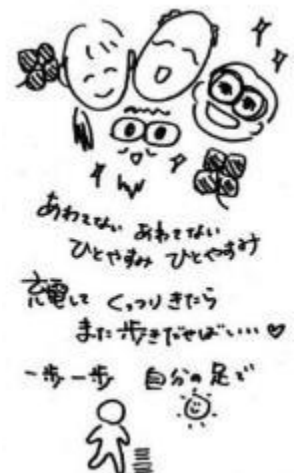 あわてない あわてない
ひとやすみ ひとやすみ
充電して くっつりきたら
また歩きだせばいい…♡
一歩一歩 自分の足で